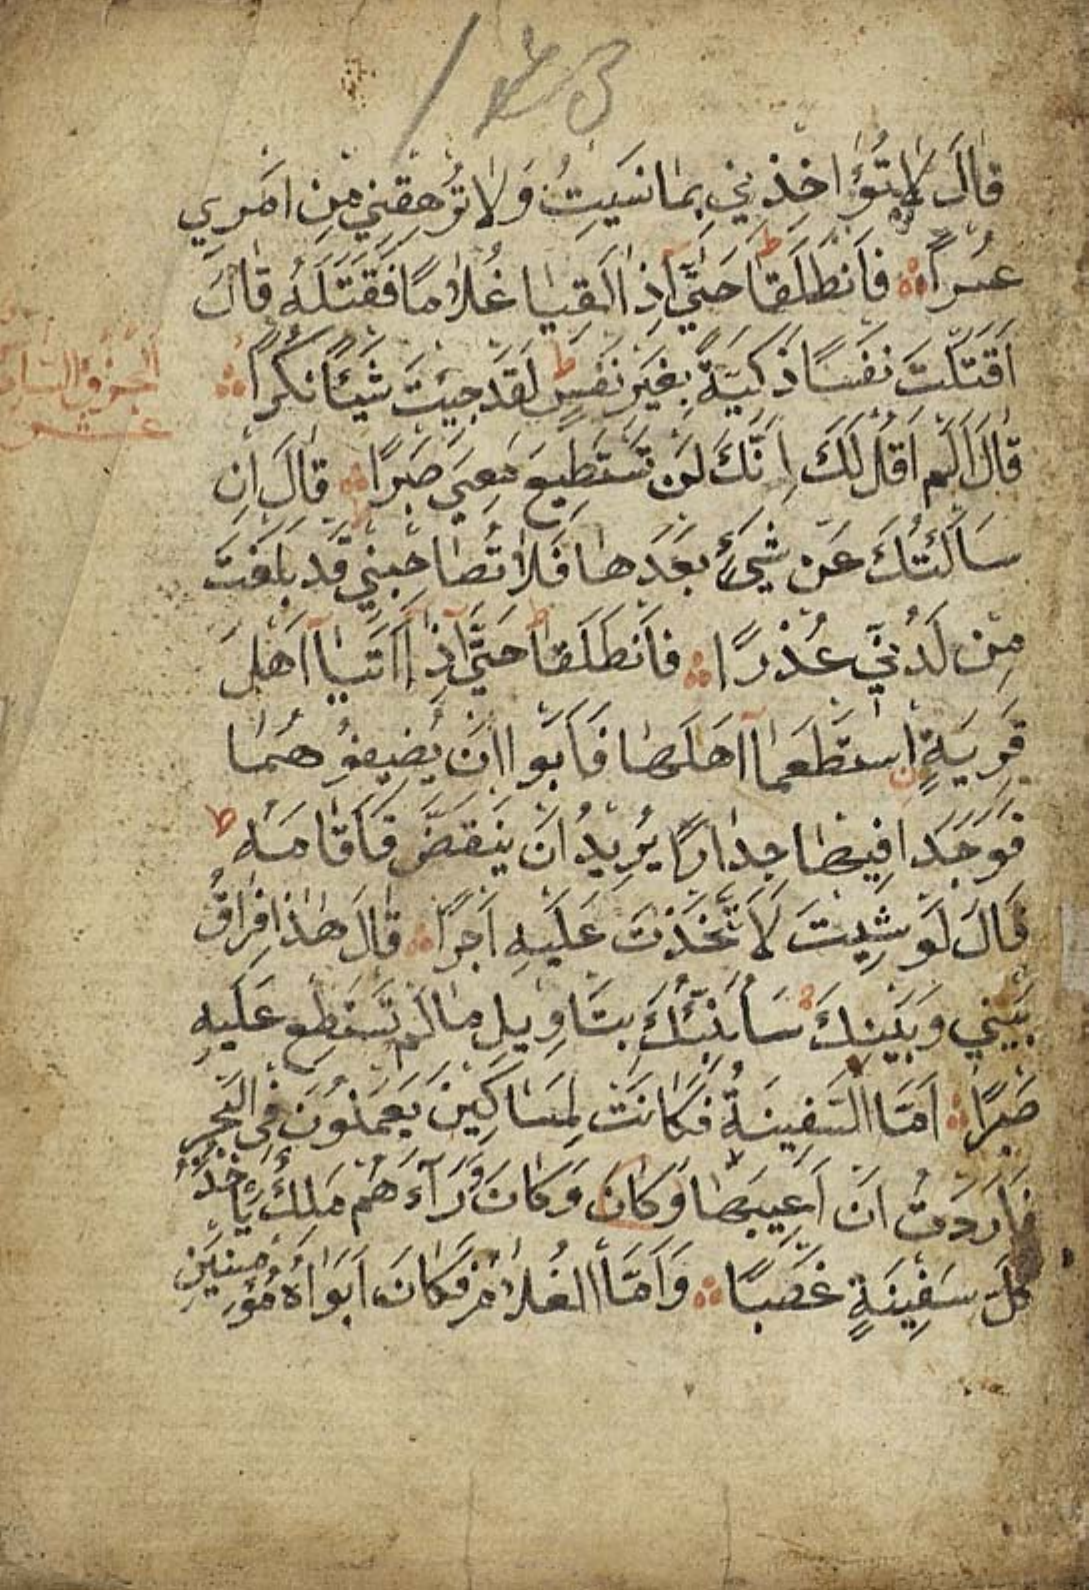 173
قَالَ لَا تُؤَاخِذْنِي بِمَا نَسِيتُ وَلَا تُرْهِقْنِي مِنْ اَمْرِي
عُسْرًا فَانْطَلَقَا ط حَتَّى اِذَا لَقِيَا غُلَامًا فَقَتَلَهُ قَالَ
اَقَتَلْتَ نَفْسًا زَكِيَّةً بِغَيْرِ نَفْسٍ ط لَقَدْ جِئْتَ شَيْئًا نُكْرًا
الجزؤ السادس
عشر
قَالَ اَلَمْ اَقُلْ لَكَ اِنَّكَ لَنْ تَسْتَطِيعَ مَعِيَ صَبْرًا قَالَ اِنْ
سَاَلْتُكَ عَنْ شَيْءٍ بَعْدَهَا فَلَا تُصَاحِبْنِي قَدْ بَلَغْتَ
مِنْ لَدُنِّي عُذْرًا فَانْطَلَقَا ط حَتَّى اِذَا اَتَيَا اَهْلَ
قَرْيَةٍ اسْتَطْعَمَا اَهْلَهَا فَاَبَوْا اَنْ يُضِيفُوهُمَا
فَوَجَدَا فِيهَا جِدَارًا يُرِيدُ اَنْ يَنْقَضَّ فَاَقَامَهُ ط
قَالَ لَوْ شِيتَ لَاتَّخَذْتَ عَلَيْهِ اَجْرًا قَالَ هٰذَا فِرَاقُ
بَيْنِي وَبَيْنِكَ سَاُنَبِّئُكَ بِتَاوِيلِ مَا لَمْ تَسْتَطِعْ عَلَيْهِ
صَبْرًا اَمَّا السَّفِينَةُ فَكَانَتْ لِمَسَاكِينَ يَعْمَلُونَ فِي الْبَحْرِ
فَاَرَدْتُ اَنْ اَعِيبَهَا وَكَانَ وَكَانَ وَرَآءَهُمْ مَلِكٌ يَاْخُذُ
كُلَّ سَفِينَةٍ غَصْبًا وَاَمَّا الْغُلَامُ فَكَانَ اَبَوَاهُ مُؤْمِنَيْنِ